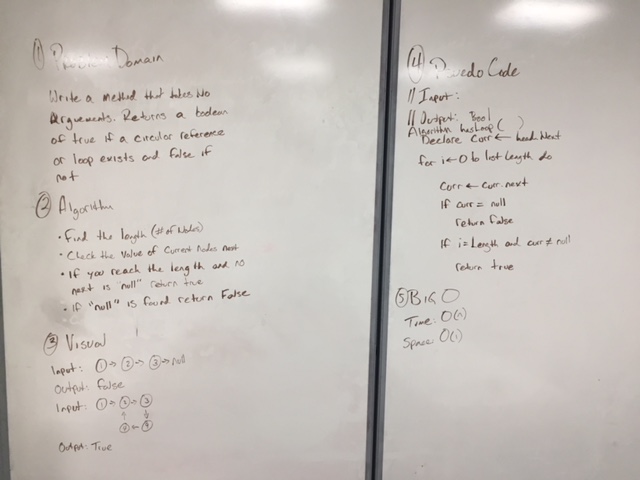 ① Problem Domain
Write a method that takes no
arguements. Returns a boolean
of true if a circular reference
or loop exists and false if
not
② Algorithm
• Find the length (# of Nodes)
• Check the value of current nodes next
• If you reach the length and no
next is "null" return true
• If "null" is found return False
③ Visual
Input: ① → ② → ③ → null
Output: false
Input: ① → ② → ③
↑ ↓
Output: True
④ Psuedo Code
// Input:
// Output: Bool
Algorithm hasLoop ( )
Declare Curr ← head.Next
for i ← 0 to list length do
Curr ← curr.next
If curr = null
return False
If i = Length and curr ≠ null
return true
⑤ Big O
Time: O(n)
Space: O(1)